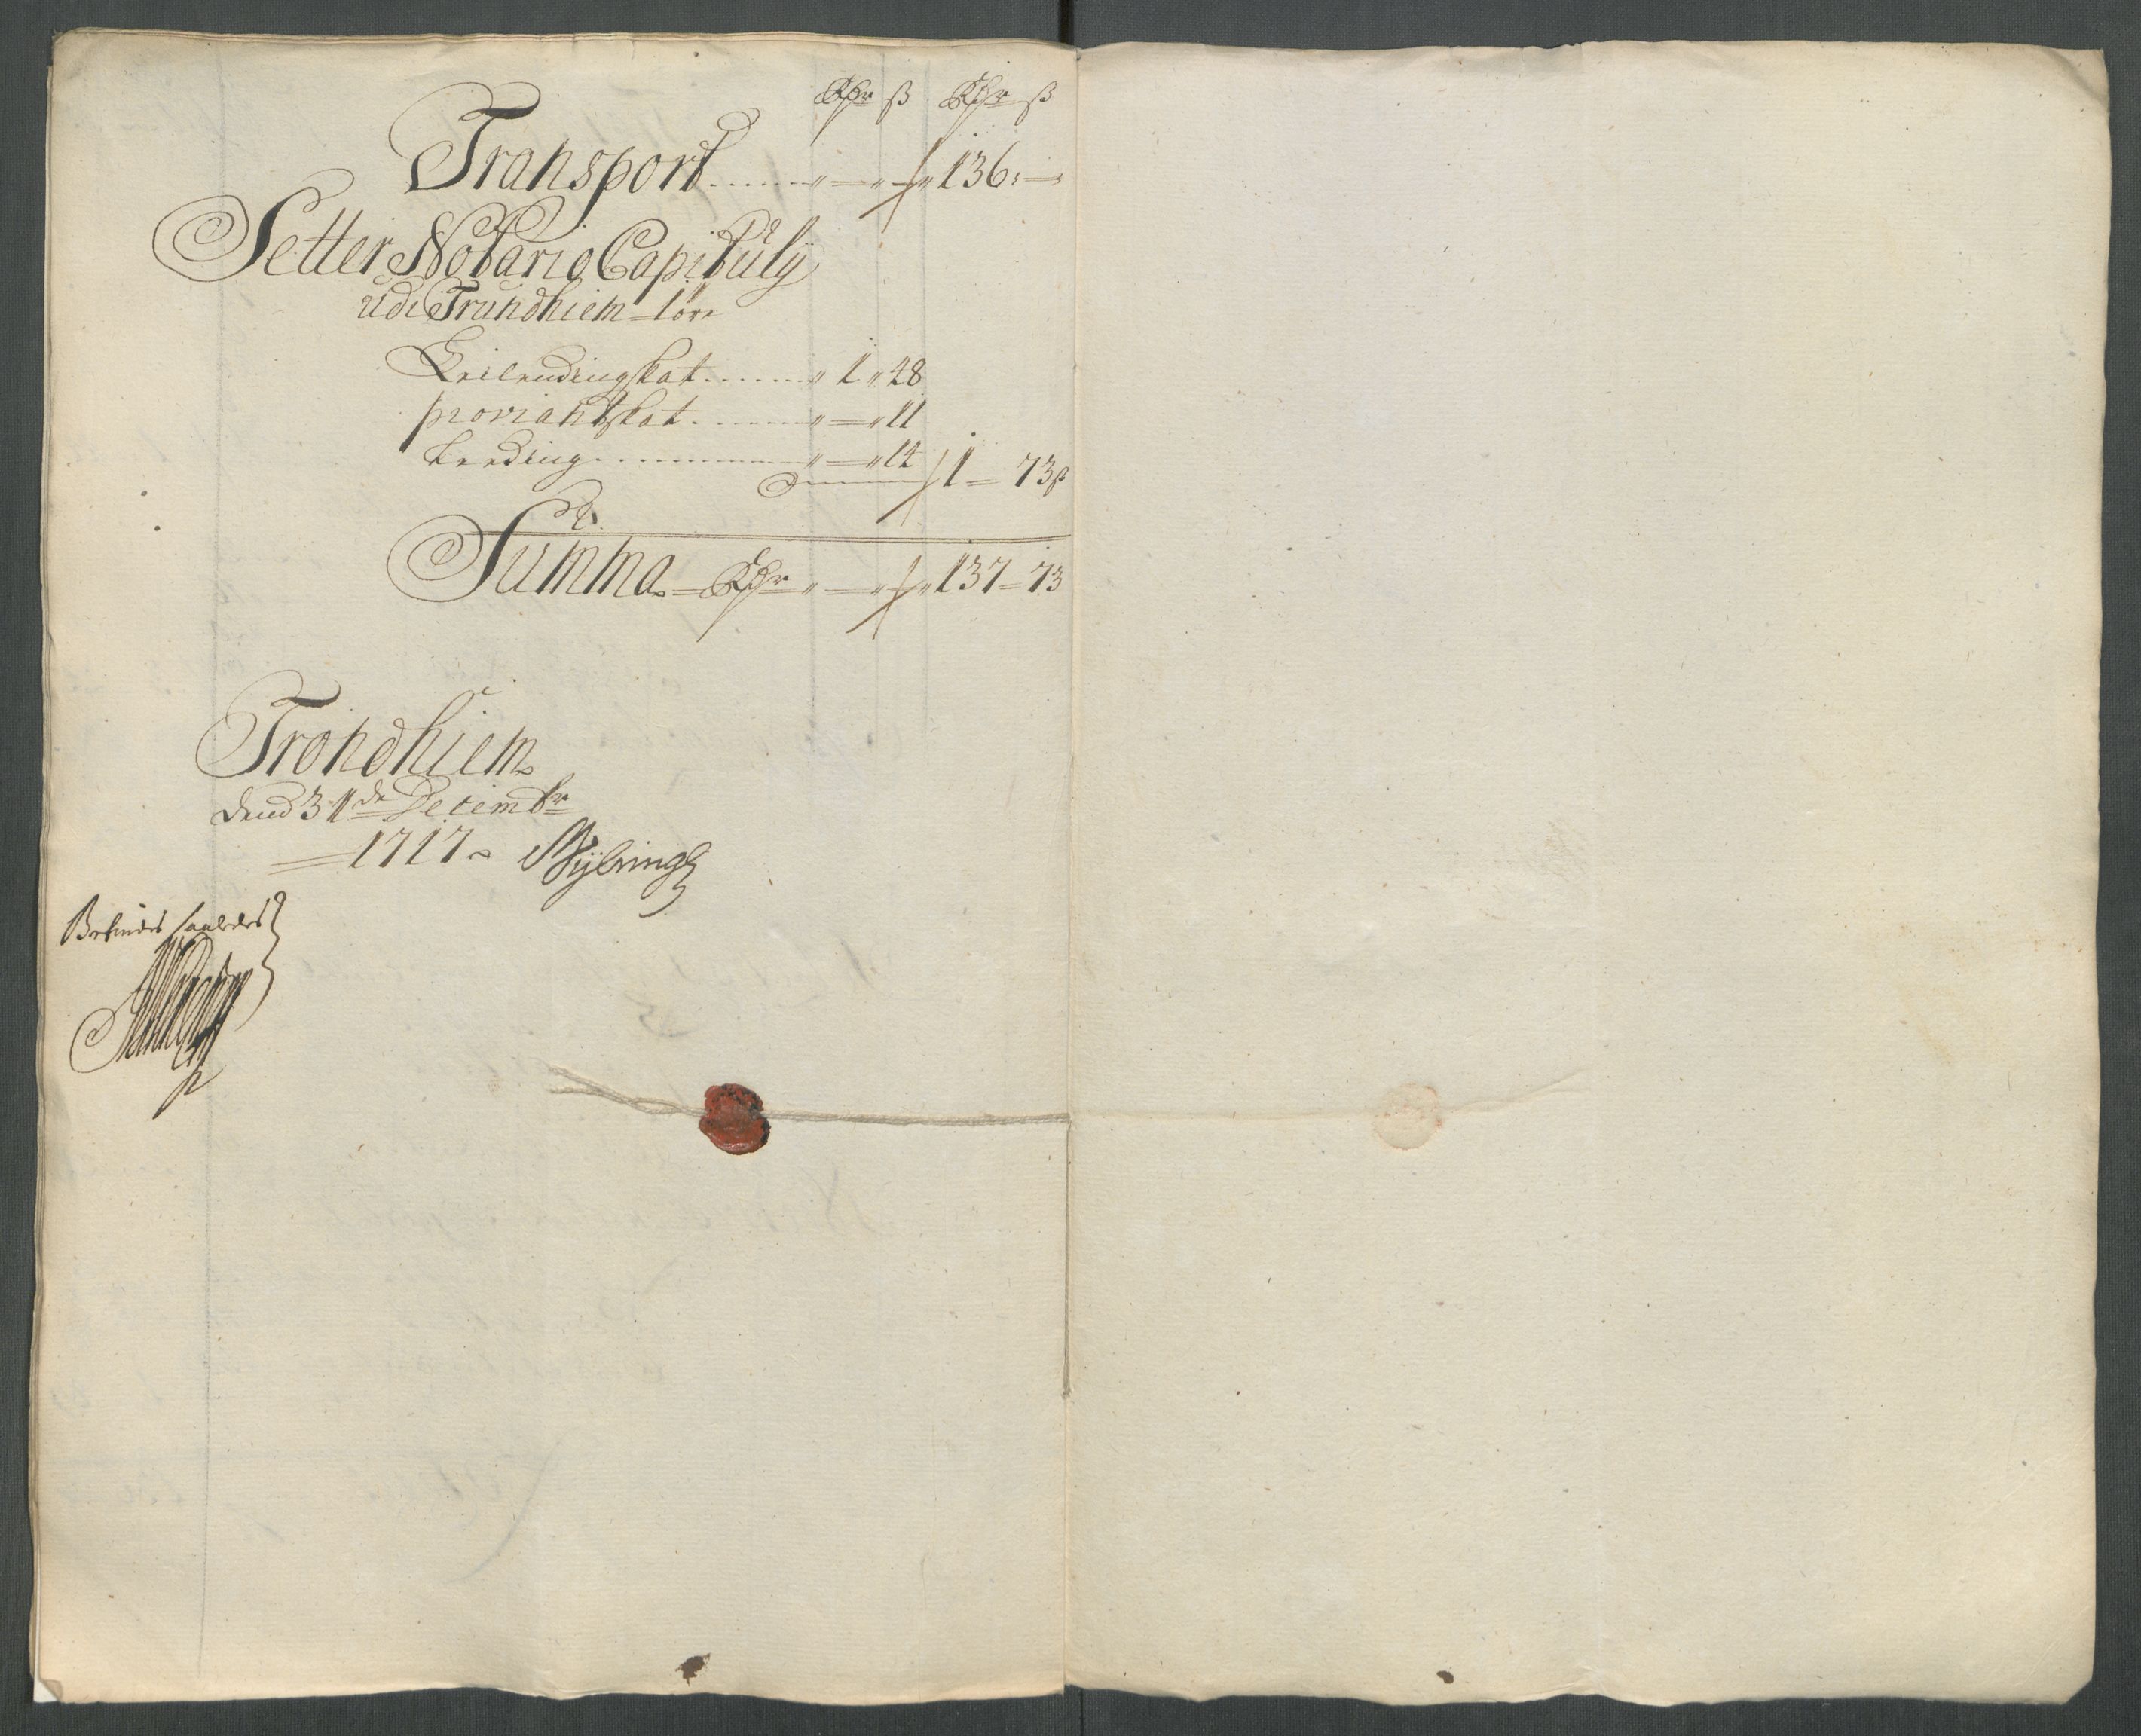 Rdr ß Rdr ß
Transport ...... „ — „ — „ 136: —
Setter Notario Capituly
udi Trundhiem
Leilendingskat ...... „ 1 „ 48
proviantskat ...... „ — „ 11
Leeding ...... „ — „ 14 1 — 73ß
Summa — Rdr „ — „ — „ 137 — 73
Trondhiem
dend 31de Decembr
1717
Befindes saaledes